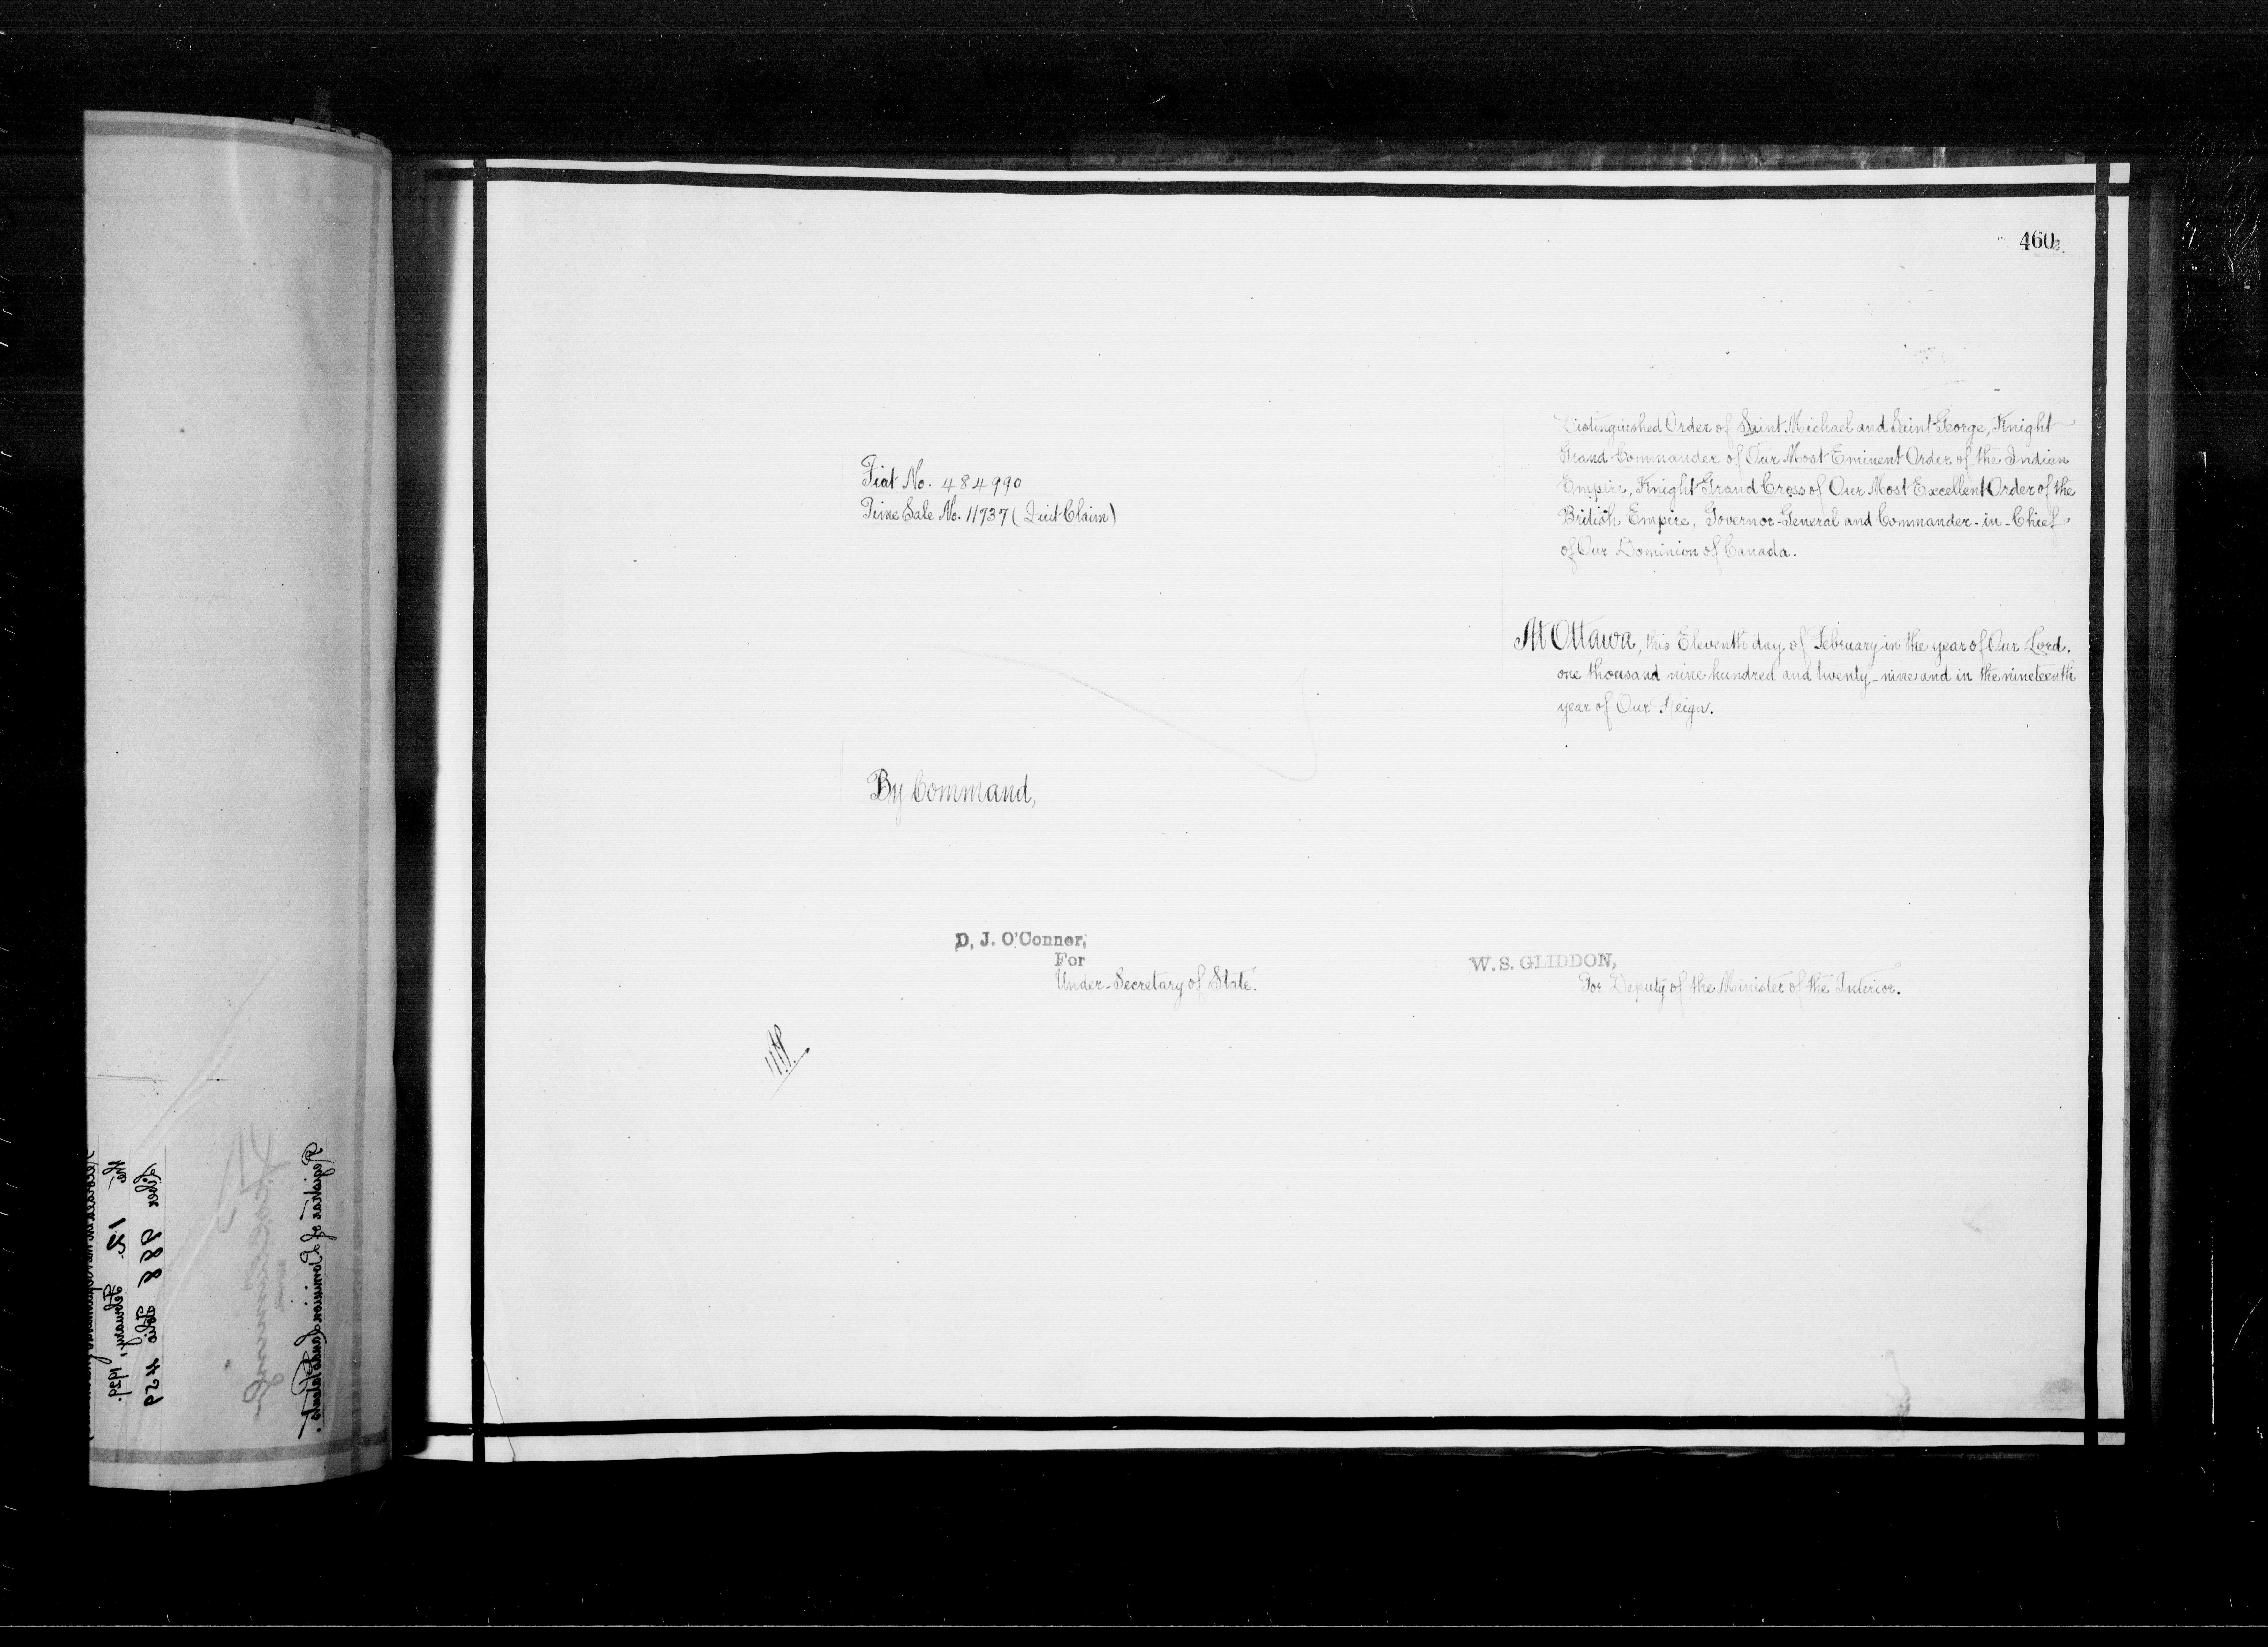 460
Fiat No. 484990
Time Sale No. 11737 (Quit Claim)
Distinguished Order of Saint Michael and Saint George, Knight
Grand Commander of Our Most Eminent Order of the Indian
Empire, Knight Grand Cross of Our Most Excellent Order of the
British Empire, Governor-General and Commander-in-Chief
of Our Dominion of Canada.
At Ottawa, this Eleventh day of February in the year of Our Lord,
one thousand nine hundred and twenty-nine and in the nineteenth
year of Our Reign.
By Command,
D. J. O'Connor,
For
Under-Secretary of State.
W.S. GLIDDON,
For Deputy of the Minister of the Interior.
the 12 February, 1929.
Liber 988 Folio 459
Registrar of Dominion Lands Patents.